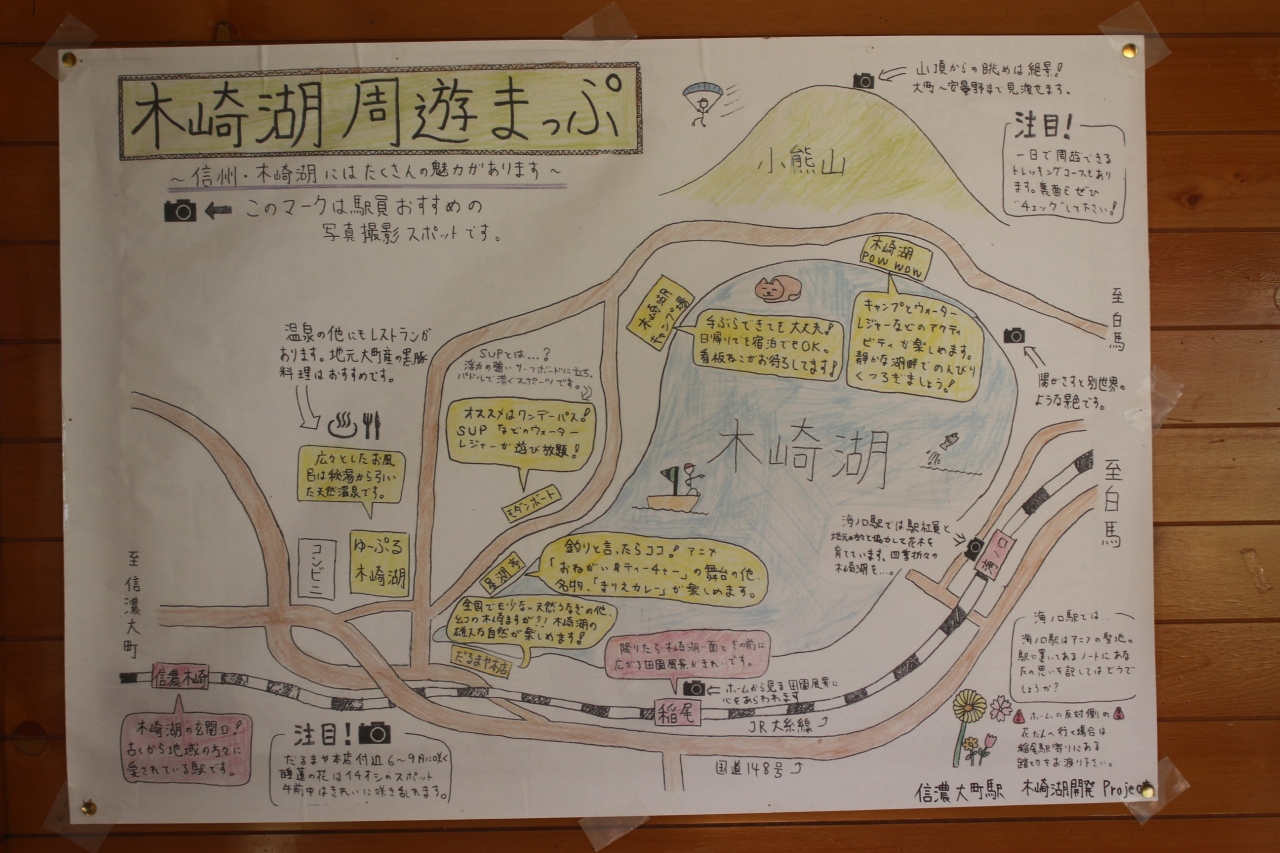 木崎湖 周遊まっぷ
～信州・木崎湖にはたくさんの魅力があります～
このマークは駅員おすすめの
写真撮影スポットです。
山頂からの眺めは絶景!
大町～安曇野まで見渡せます。
小熊山
注目!
一日で周遊できる
トレッキングコースもあり
ます。裏面もぜひ
"チェック"して下さい!
木崎湖
POW WOW
キャンプとウォーター
レジャーなどのアクティ
ビティが楽しめます。
静かな湖畔でのんびり
くつろぎましょう!
木崎湖
キャンプ場
手ぶらできても大丈夫!
日帰りでも宿泊でもOK。
看板ねこがお待ちしてます!
至白馬
陽がさすと別世界の
ような景色です。
温泉の他にもレストランが
あります。地元大町産の黒豚
料理はおすすめです。
SUPとは…?
浮力の強いサーフボードに立ち、
パドルで漕ぐスポーツです。
オススメはワンデーパス!
SUPなどのウォーター
レジャーが遊び放題!
モダンボート
広々としたお風
呂は秘湯から引い
た天然温泉です。
コンビニ
ゆーぷる
木崎湖
木崎湖
至白馬
海ノ口駅では駅社員と
地元の方々と協力して花木を
育てています。四季折々の
木崎湖を…。
海ノ口
星湖亭
釣りと言ったらココ! アニメ
「おねがいティーチャー」の舞台の他、
名物、「まりえカレー」が楽しめます。
全国でも少ない天然うなぎの他、
幻の木崎ますが?! 木崎湖の
雄大な自然が楽しめます!
だるまや本店
降りたら木崎湖一面とその前に
広がる田園風景がきれいです。
ホームから見る田園風景に
心をあらわれます
稲尾
JR大糸線
国道148号
至信濃大町
信濃木崎
木崎湖の玄関口!
古くから地域の方々に
愛されている駅です。
注目!
だるまや本店付近 6～9月に咲く
睡蓮の花はイチオシのスポット
午前中はきれいに咲き乱れます。
海ノ口駅では…
海ノ口駅はアニメの聖地。
駅に置いてあるノートにあな
たの思いを記してはどうで
しょうか?
ホームの反対側の
花だんへ行く場合は
稲尾駅寄りにある
踏切をお渡り下さい。
信濃大町駅 木崎湖開発 Project